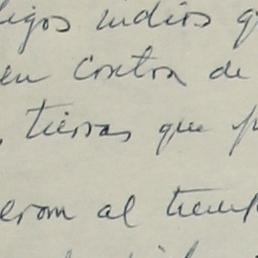 igos indios q
en contra de
, tierras que p
eron al tiemp